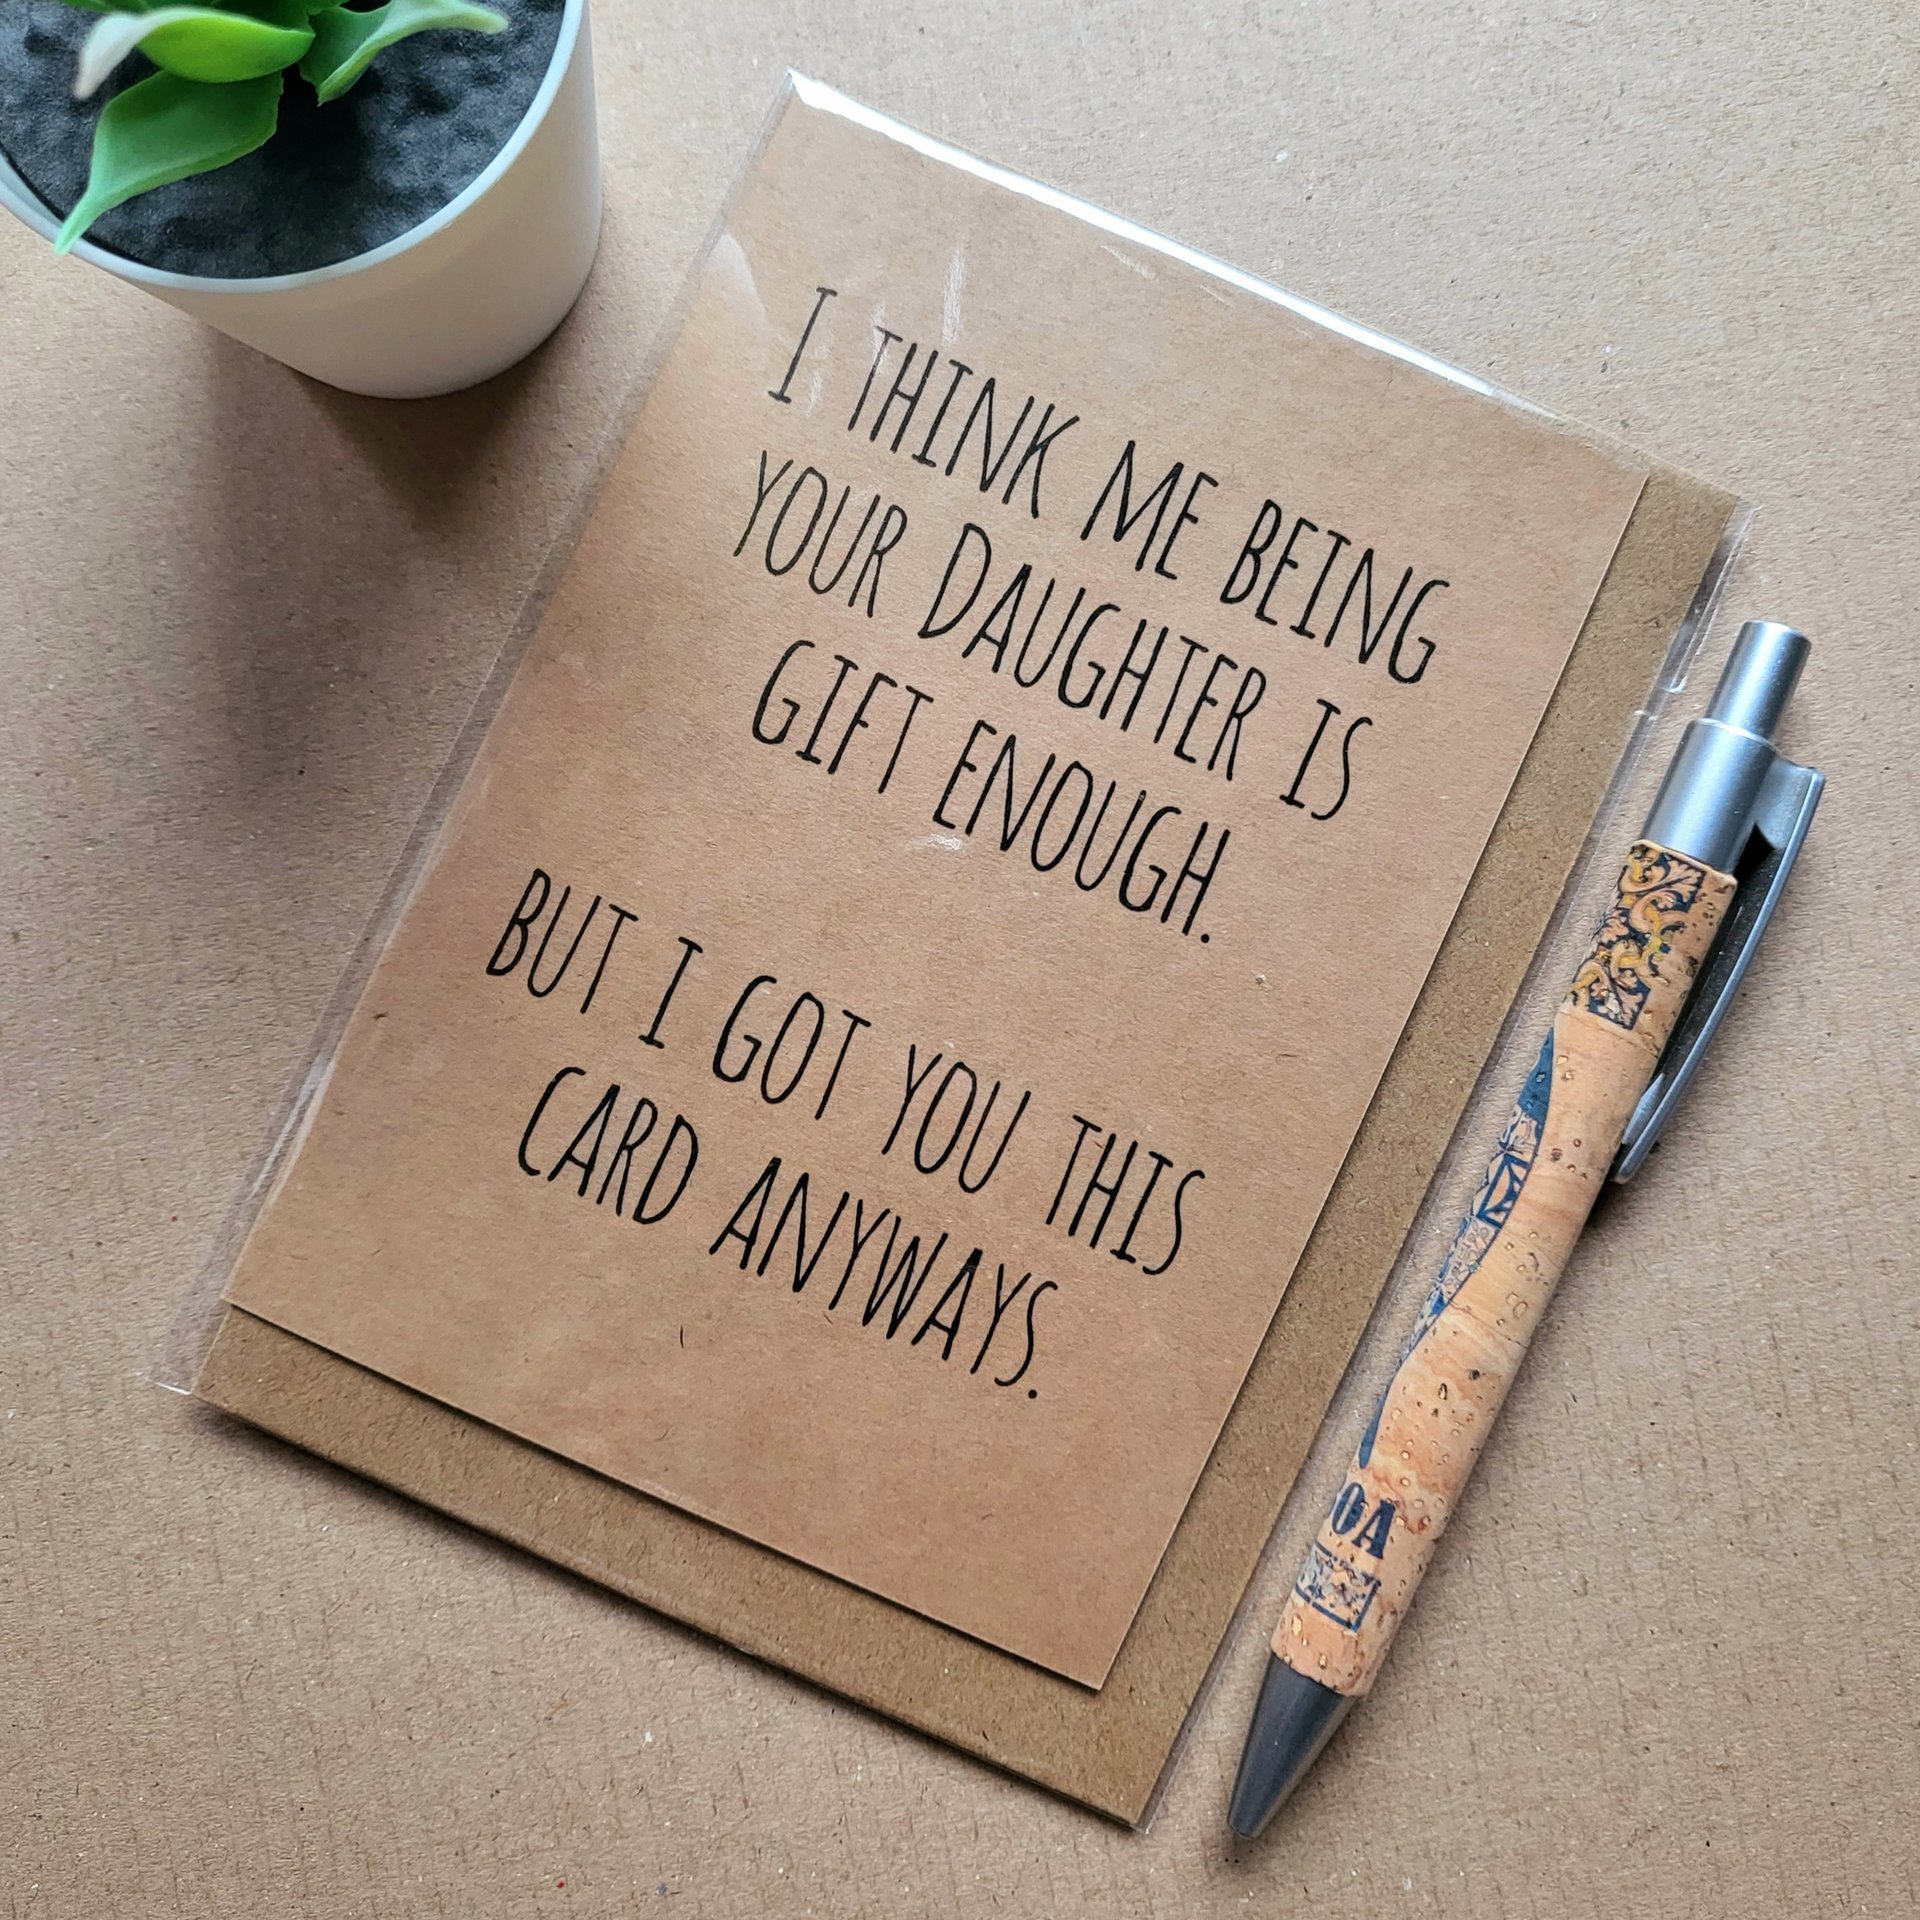 I THINK ME BEING
YOUR DAUGHTER IS
GIFT ENOUGH.
BUT I GOT YOU THIS
CARD ANYWAYS.
OA